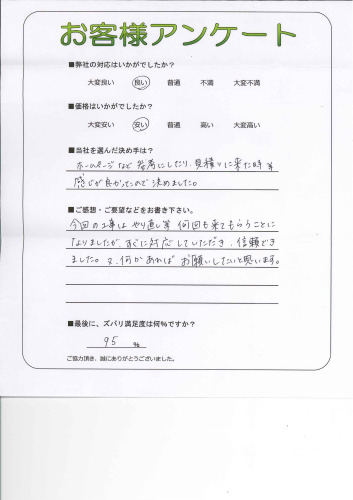 お客様アンケート
■弊社の対応はいかがでしたか？
大変良い　良い　普通　不満　大変不満
■価格はいかがでしたか？
大変安い　安い　普通　高い　大変高い
■当社を選んだ決め手は？
ホームページなど参考にしたり、見積りに来た時等
感じが良かったので決めました。
■ご感想・ご要望などをお書き下さい。
今回の工事は やり直し等 何回も来てもらうことに
なりましたが、すぐに対応していただき、信頼でき
ました。又、何かあれば お願いしたいと思います。
■最後に、ズバリ満足度は何％ですか？
95 ％
ご協力頂き、誠にありがとうございました。